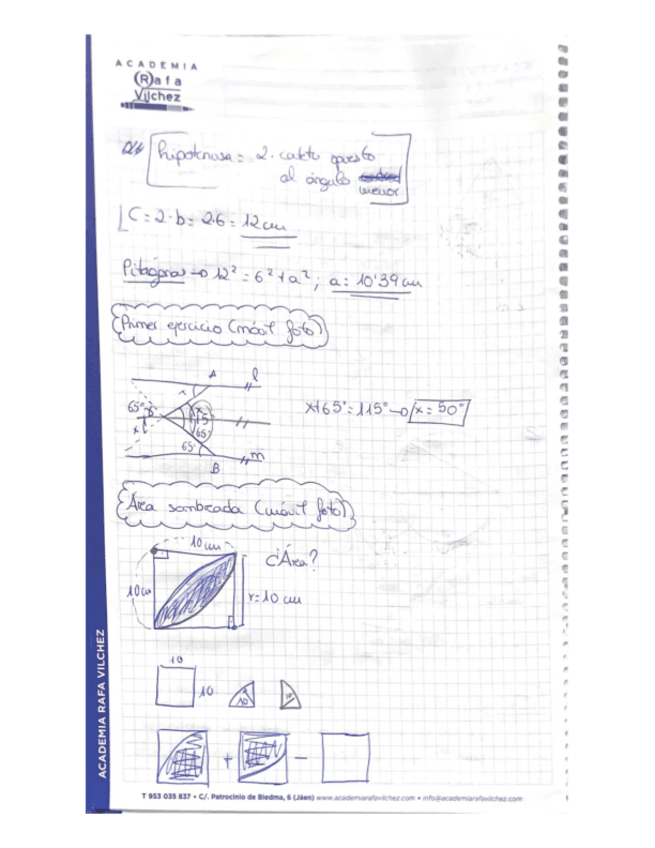 ACADEMIA
Rafa
Vílchez
hipotenusa = 2. cateto opuesto
al ángulo
menor
C = 2·b = 2·6 = 12 cm
Pitágoras → 12² = 6² + a² ; a = 10'39 cm
Primer ejercicio (móvil foto)
A l
65°
x
65
65°
B m
x+65° = 115° → x = 50°
Área sombreada (móvil foto)
10 cm
¿Área?
10 cm
r = 10 cm
10
10
10
10
+ −
ACADEMIA RAFA VILCHEZ
T 953 035 837 • C/. Patrocinio de Biedma, 6 (Jáen) www.academiarafavilchez.com • info@academiarafavilchez.com